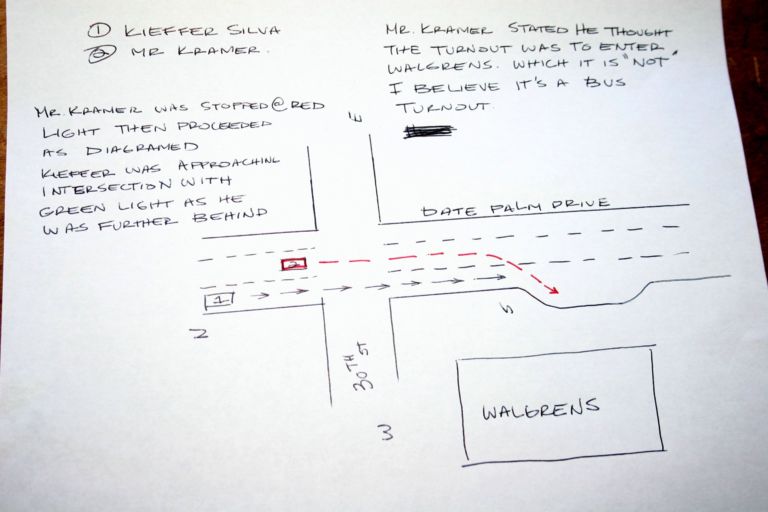 ① KIEFFER SILVA
② MR KRAMER.
MR. KRAMER STATED HE THOUGHT
THE TURNOUT WAS TO ENTER
WALGRENS. WHICH IT IS "NOT"
I BELIEVE IT'S A BUS
TURNOUT.
MR. KRAMER WAS STOPPED @ RED
LIGHT THEN PROCEEDED
AS DIAGRAMED
KIEFFER WAS APPROACHING
INTERSECTION WITH
GREEN LIGHT AS HE
WAS FURTHER BEHIND
E
DATE PALM DRIVE
2
1
N
S
30TH ST
W
WALGRENS